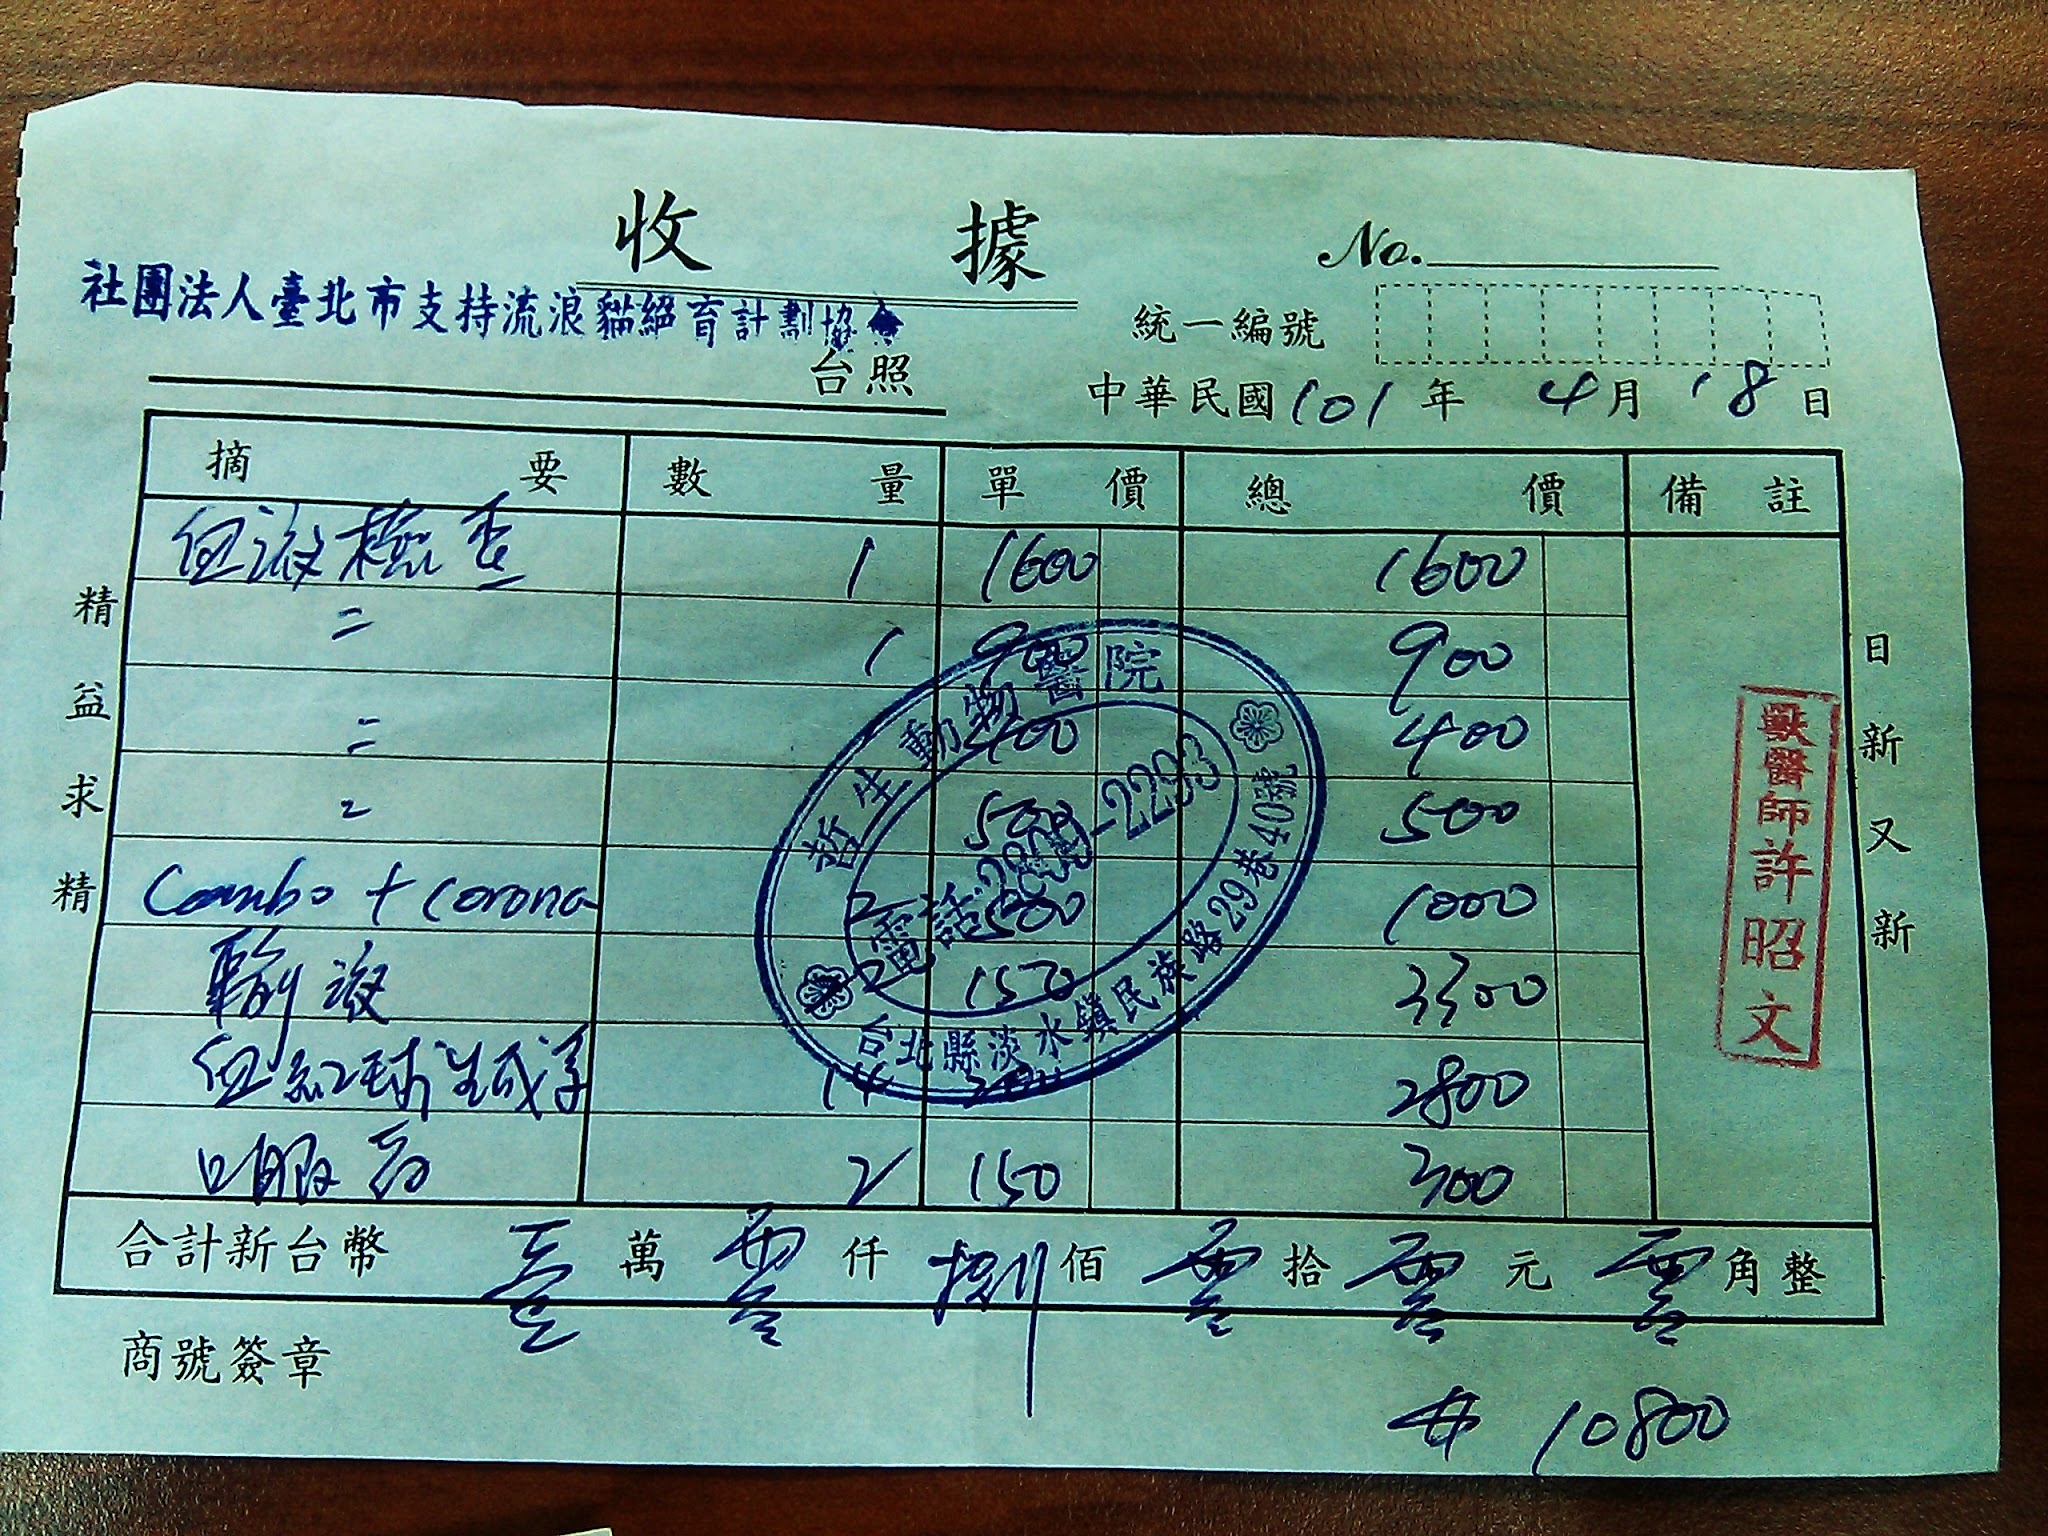 收據
No.
社團法人臺北市支持流浪貓絕育計劃協會
台照
統一編號
中華民國101年4月18日
摘要 數量 單價 總價 備註
血液檢查 1 1600 1600
〃 1 900 900
〃 400 400
〃 500 500
Combo + corona 2 500 1000
輸液 150 3300
血紅球生成素 14 2800
口服药 2 150 300
合計新台幣 壹萬零仟捌佰零拾零元零角整
商號簽章
# 10800
精益求精
日新又新
哲生動物醫院
-2293
台北縣淡水鎮民族路29巷40號
獸醫師許昭文